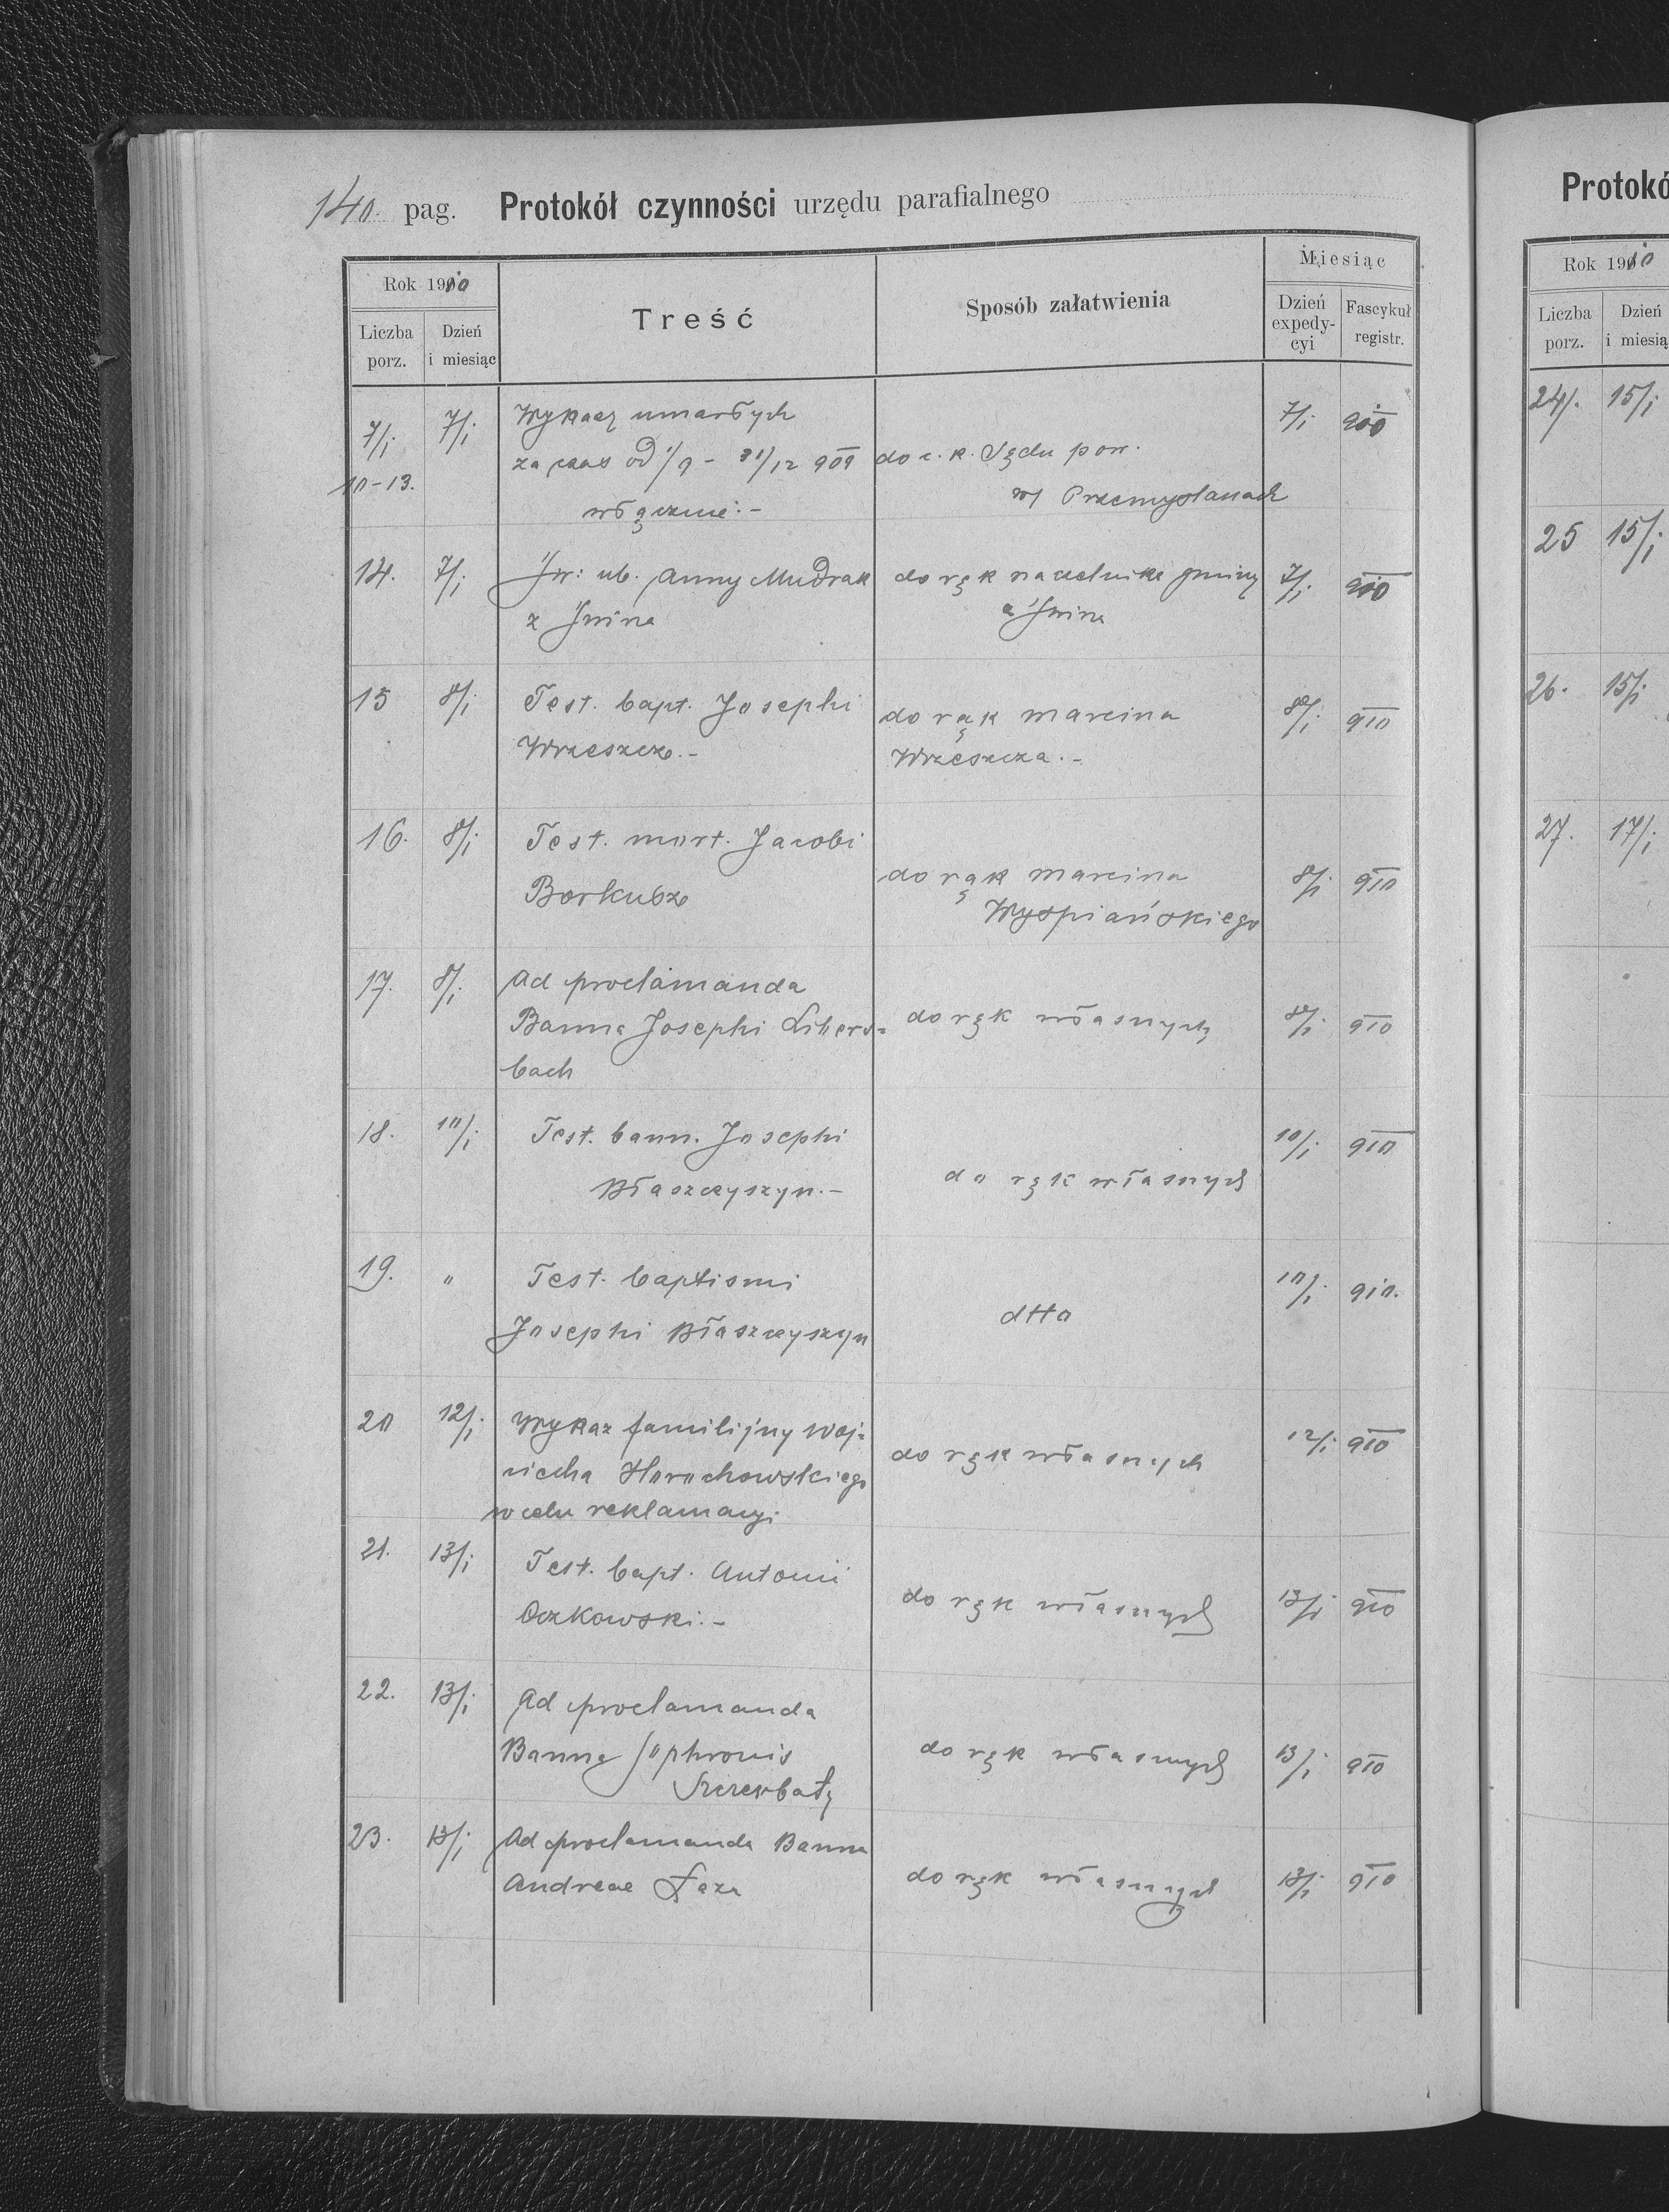 140. pag. Protokół czynności urzędu parafialnego
Rok 1910
Liczba porz.
Dzień i miesiąc
Treść
Sposób załatwienia
Miesiąc
Dzień expedycyi
Fascykuł registr.
7/i 7/i Wykazy umarłych 7/i 910
za czas od 1/9 - 31/12 909 do c. k. Sądu pow.
10-13. w Przemyślanach
włącznie.-
14. 7/i ub. Anny Mudrak do rąk naczelnika gminy 7/i 910
z
15 8/i Test. bapt. Josephi do rąk Marcina 8/i 910
Wrzeszcz.- Wrzeszcza.-
16. 8/i Test. mort. Jacobi do rąk Marcina 8/i 910
Wyspiańskiego
17. 8/i Ad proclamanda
Banna Josephi do rąk własnych 8/i 910
bach
18. 10/i Test. bann. Josephi 10/i 910
Błaszczyszyn.- do rąk własnych
19. " Test. baptismi 10/i 910.
Josephi Błaszczyszyn dtto
20 12/i Wykaz familijny Woj-
ciecha Horochowskiego do rąk własnych 12/i 910
w celu reklamacyi
21. 13/i Test. bapt. Antonii
Oczkowski.- do rąk własnych 13/i 910
22. 13/i Ad proclamanda
Banna Sophronis do rąk własnych 13/i 910
Szczerbaty
23. 13/i Ad proclamanda Banna
Andreae Łaza do rąk własnych 13/i 910
Protokó
Rok 1910
Liczba porz.
Dzień i miesią
24. 15/i
25 15/i
26. 15/i
27. 17/i